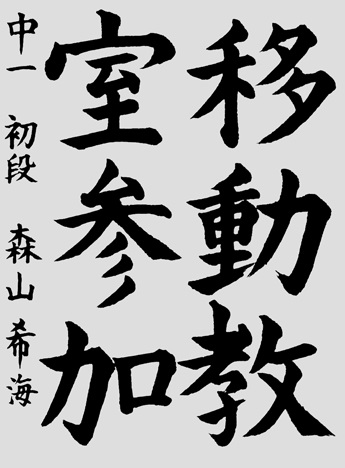 移動教
室参加
中一 初段 森山希海